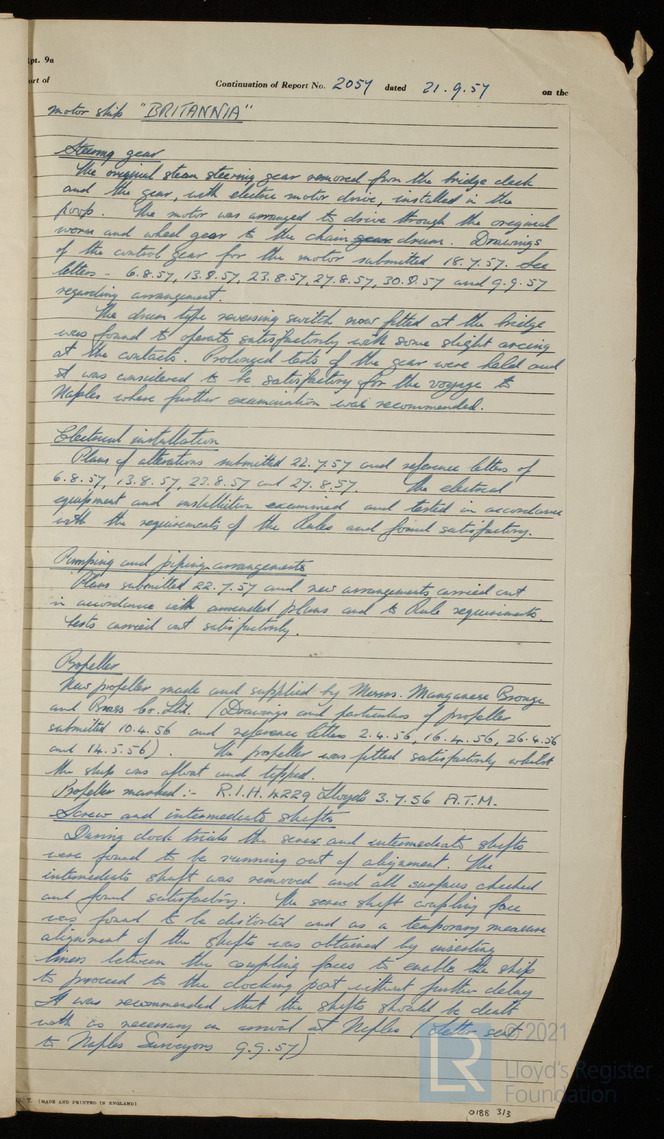 Rpt. 9a
ort of
Continuation of Report No. 2054 dated 21.9.57 on the
motor ship "BRITANNIA"
Steering gear
The original steam steering gear removed from the bridge deck
and the gear, with electric motor drive, installed in the
poop. The motor was arranged to drive through the original
worm and wheel gear to the chain gear drum. Drawings
of the control gear for the motor submitted 18.7.57. See
letters - 6.8.57, 13.8.57, 23.8.57, 27.8.57, 30.8.57 and 9.9.57
regarding arrangement.
The drum type reversing switch now fitted at the bridge
was found to operate satisfactorily with some slight arcing
at the contacts. Prolonged tests of the gear were held and
it was considered to be satisfactory for the voyage to
Naples where further examination was recommended.
Electrical installation
Plans of alterations submitted 22.7.57 and reference letters of
6.8.57, 13.8.57, 23.8.57 and 27.8.57. The electrical
equipment and installation examined and tested in accordance
with the requirements of the Rules and found satisfactory.
Pumping and piping arrangements
Plans submitted 22.7.57 and new arrangements carried out
in accordance with amended plans and to Rule requirements.
Tests carried out satisfactorily.
Propeller
New propeller made and supplied by Messrs. Manganese Bronze
and Brass Co. Ltd. (Drawings and particulars of propeller
submitted 10.4.56 and reference letters 2.4.56, 16.4.56, 26.4.56
and 14.5.56). The propeller was fitted satisfactorily whilst
the ship was afloat and tipped.
Propeller marked :- R.I.H. 4229 Lloyds 3.7.56 A.T.M.
Screw and intermediate shafts
During dock trials the screw and intermediate shafts
were found to be running out of alignment. The
intermediate shaft was removed and all surfaces checked
and found satisfactory. The screw shaft coupling face
was found to be distorted and as a temporary measure
alignment of the shafts was obtained by inserting
liners between the coupling faces to enable the ship
to proceed to the docking port without further delay
It was recommended that the shafts should be dealt
with as necessary on arrival at Naples (letter sent
to Naples Surveyors 9.9.57)
© 2021
LR
Lloyd's Register
Foundation
T. (MADE AND PRINTED IN ENGLAND)
0188 3/3